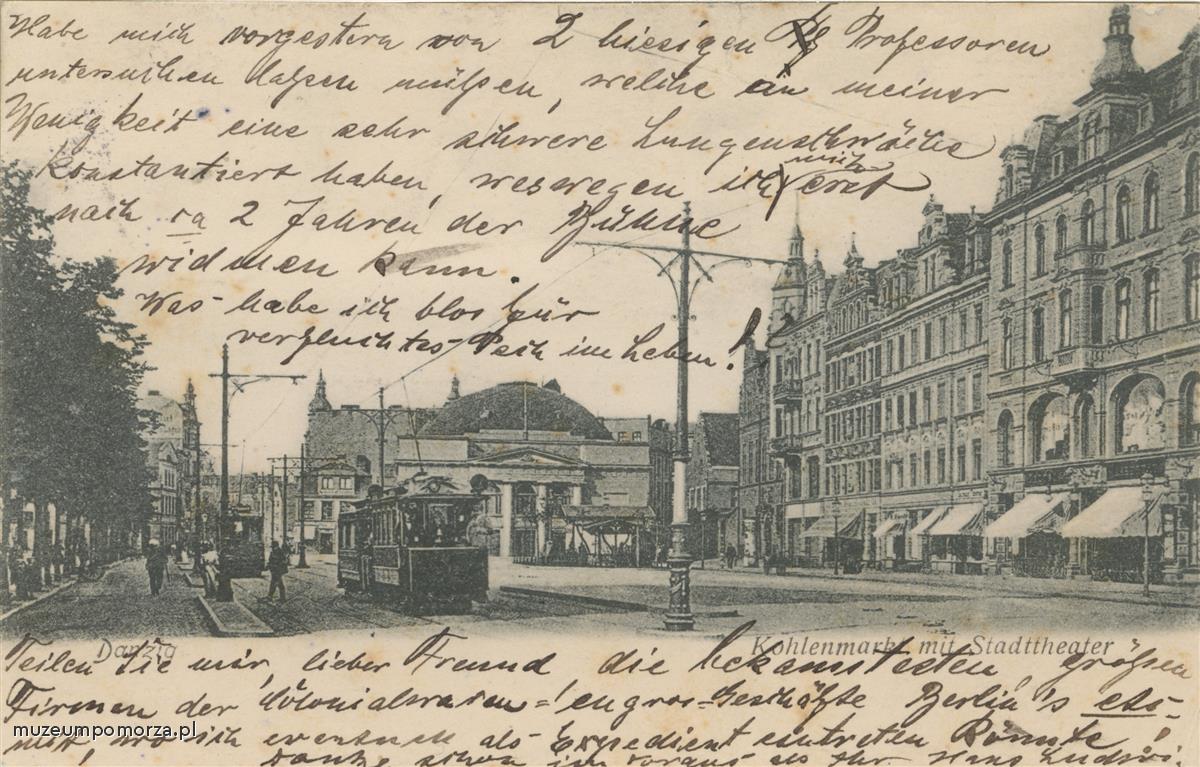 Habe mich vorgestern von 2 hiesigen Professoren
untersuchen lassen müssen, welche an meiner
Wenigkeit eine sehr schwere Lungenschwäche
konstantiert haben, weswegen ich mich erst
nach ca 2 Jahren der Bühne
widmen kann.
Was habe ich blos für
verfluchtes Pech im Leben!
Danzig
Kohlenmarkt mit Stadttheater
Teilen Sie mir, lieber Freund, die bekanntesten, größen
Firmen der Colonialwaren-engros-Geschäfte Berlin's etc.
mit, wo ich eventuell als Expedient eintreten könnte!
Danke schon im voraus als Ihr Hans Ludwi.
muzeumpomorza.pl